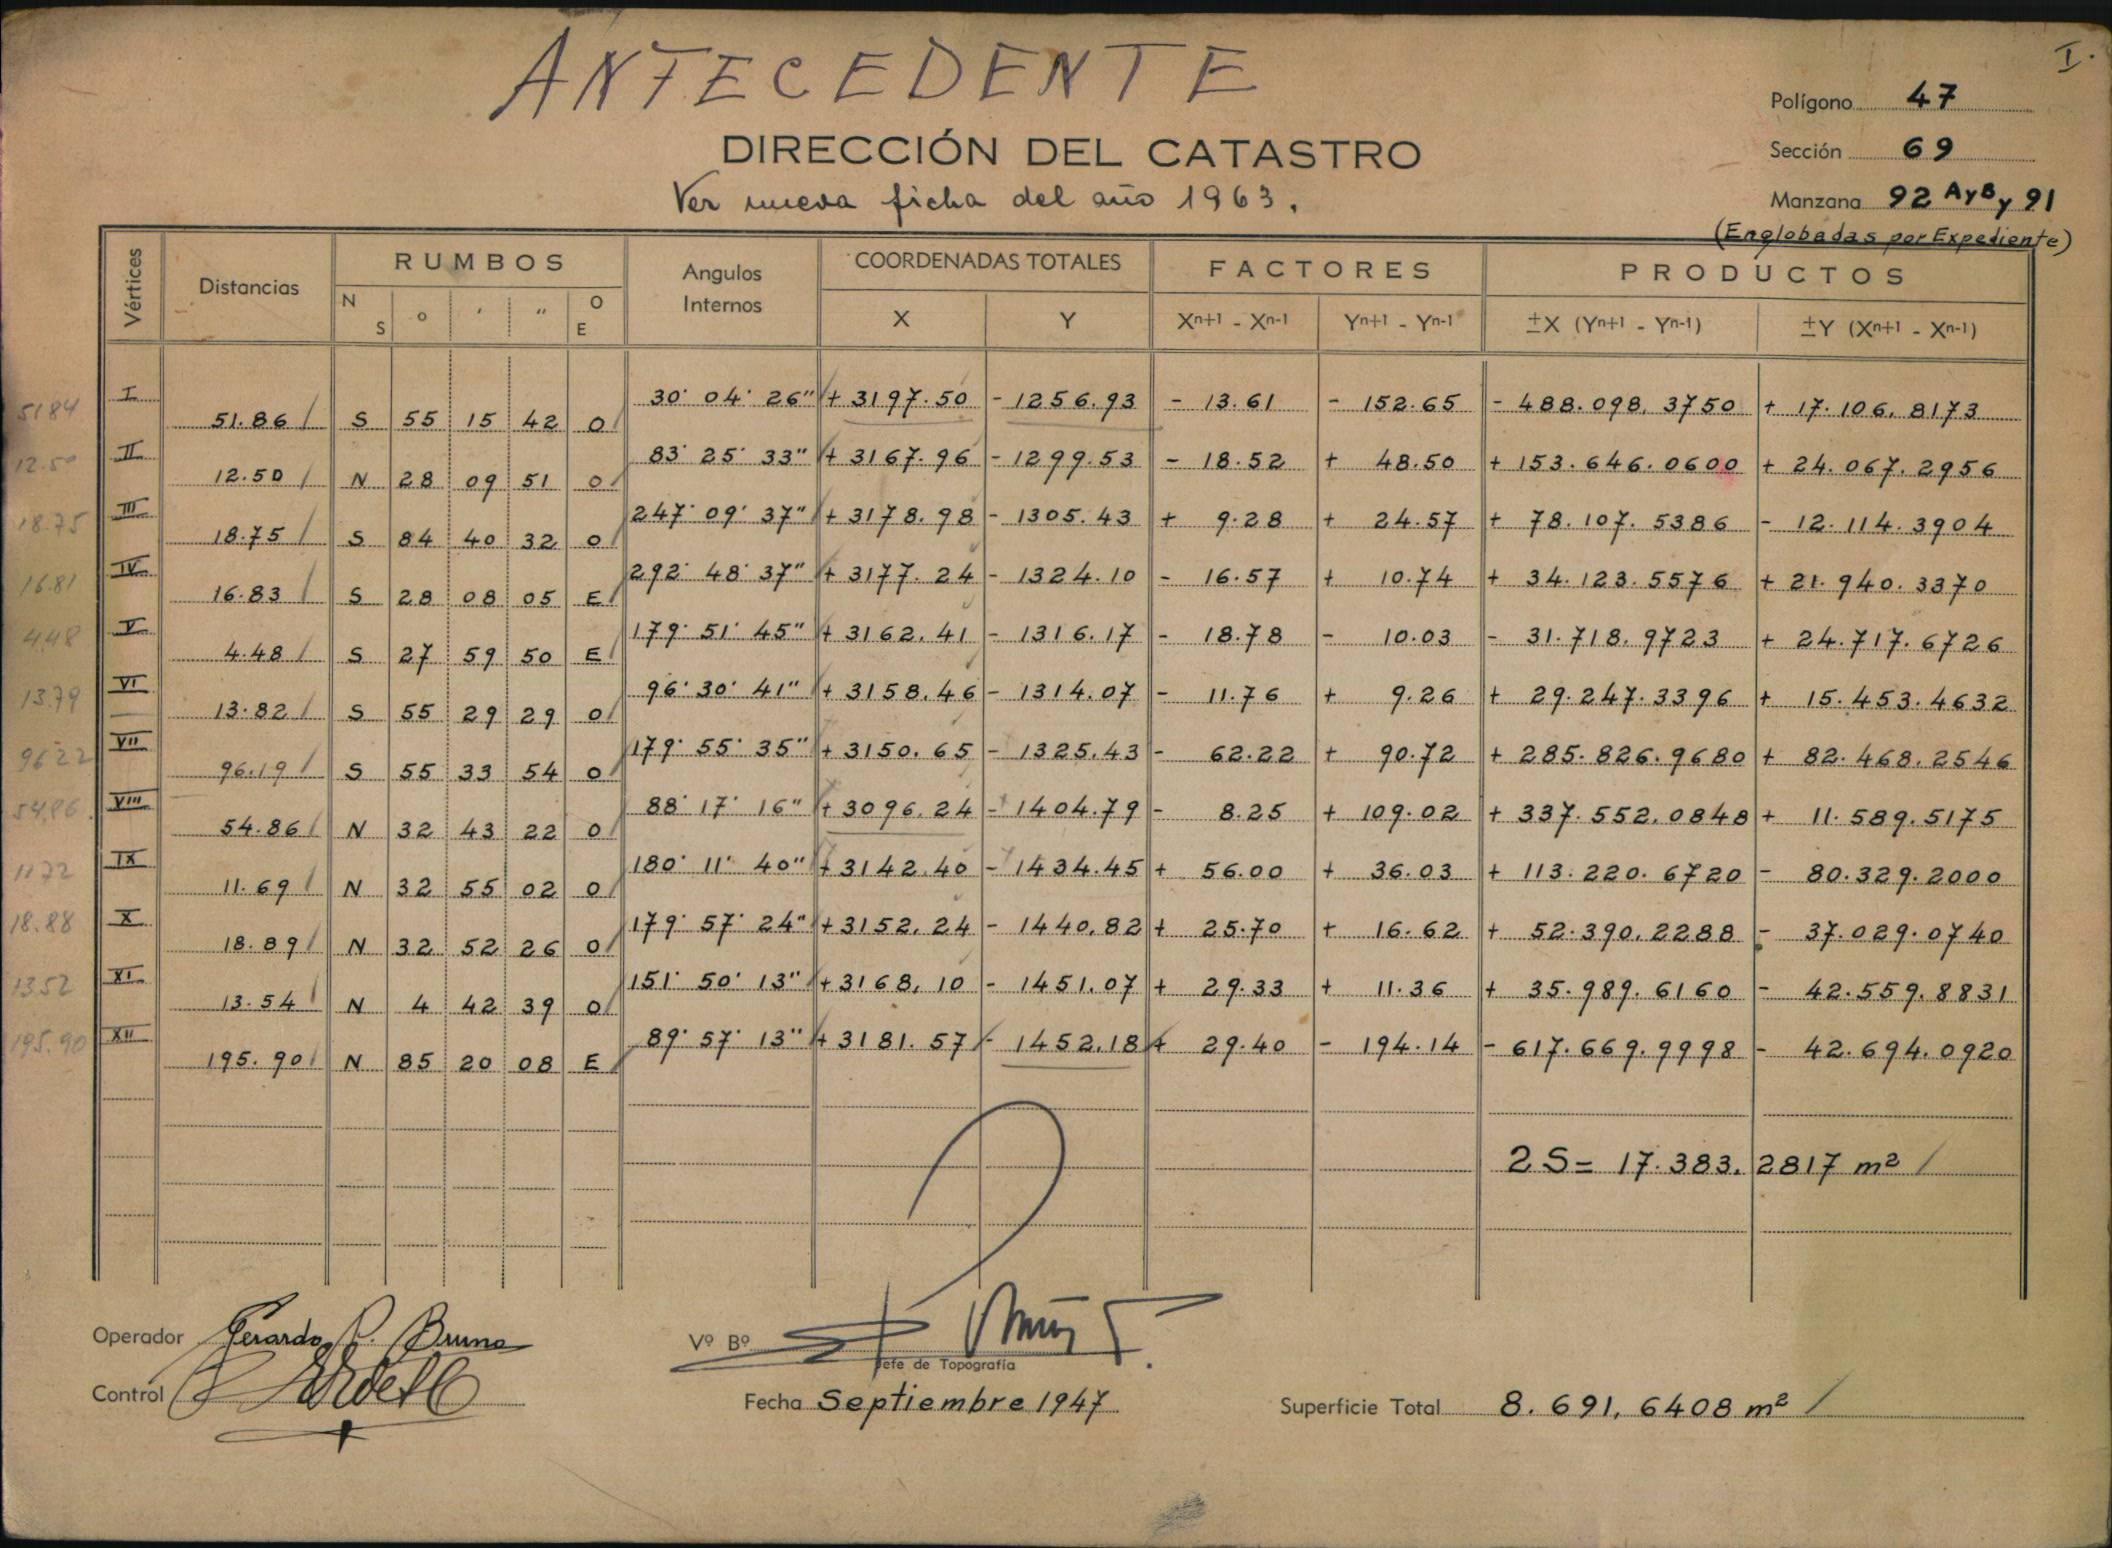 I.
ANTECEDENTE
Polígono 47
DIRECCIÓN DEL CATASTRO
Sección 69
Ver nueva ficha del año 1963.
Manzana 92 A y B y 91
(Englobadas por Expediente)
Vértices Distancias RUMBOS Angulos Internos COORDENADAS TOTALES FACTORES PRODUCTOS
N S ° ' " O E X Y Xn+1 - Xn-1 Yn+1 - Yn-1 ±X (Yn+1 - Yn-1) ±Y (Xn+1 - Xn-1)
5184 I 51.86 S 55 15 42 O 30° 04' 26" + 3197.50 - 1256.93 - 13.61 - 152.65 - 488.098.3750 + 17.106.8173
12.50 II 12.50 N 28 09 51 O 83° 25' 33" + 3167.96 - 1299.53 - 18.52 + 48.50 + 153.646.0600 + 24.067.2956
18.75 III 18.75 S 84 40 32 O 247° 09' 37" + 3178.98 - 1305.43 + 9.28 + 24.57 + 78.107.5386 - 12.114.3904
16.81 IV 16.83 S 28 08 05 E 292° 48' 37" + 3177.24 - 1324.10 - 16.57 + 10.74 + 34.123.5576 + 21.940.3370
4.48 V 4.48 S 27 59 50 E 179° 51' 45" + 3162.41 - 1316.17 - 18.78 - 10.03 - 31.718.9723 + 24.717.6726
13.79 VI 13.82 S 55 29 29 O 96° 30' 41" + 3158.46 - 1314.07 - 11.76 + 9.26 + 29.247.3396 + 15.453.4632
96.22 VII 96.19 S 55 33 54 O 179° 55' 35" + 3150.65 - 1325.43 - 62.22 + 90.72 + 285.826.9680 + 82.468.2546
54.86 VIII 54.86 N 32 43 22 O 88° 17' 16" + 3096.24 - 1404.79 - 8.25 + 109.02 + 337.552.0848 + 11.589.5175
11.72 IX 11.69 N 32 55 02 O 180° 11' 40" + 3142.40 - 1434.45 + 56.00 + 36.03 + 113.220.6720 - 80.329.2000
18.88 X 18.89 N 32 52 26 O 179° 57' 24" + 3152.24 - 1440.82 + 25.70 + 16.62 + 52.390.2288 - 37.029.0740
13.52 XI 13.54 N 4 42 39 O 151° 50' 13" + 3168.10 - 1451.07 + 29.33 + 11.36 + 35.989.6160 - 42.559.8831
195.90 XII 195.90 N 85 20 08 E 89° 57' 13" + 3181.57 - 1452.18 + 29.40 - 194.14 - 617.669.9998 - 42.694.0920
2S = 17.383.2817 m²
Operador Gerardo P. Bruno
Vº Bº
Jefe de Topografía
Control
Fecha Septiembre 1947
Superficie Total 8.691,6408 m²